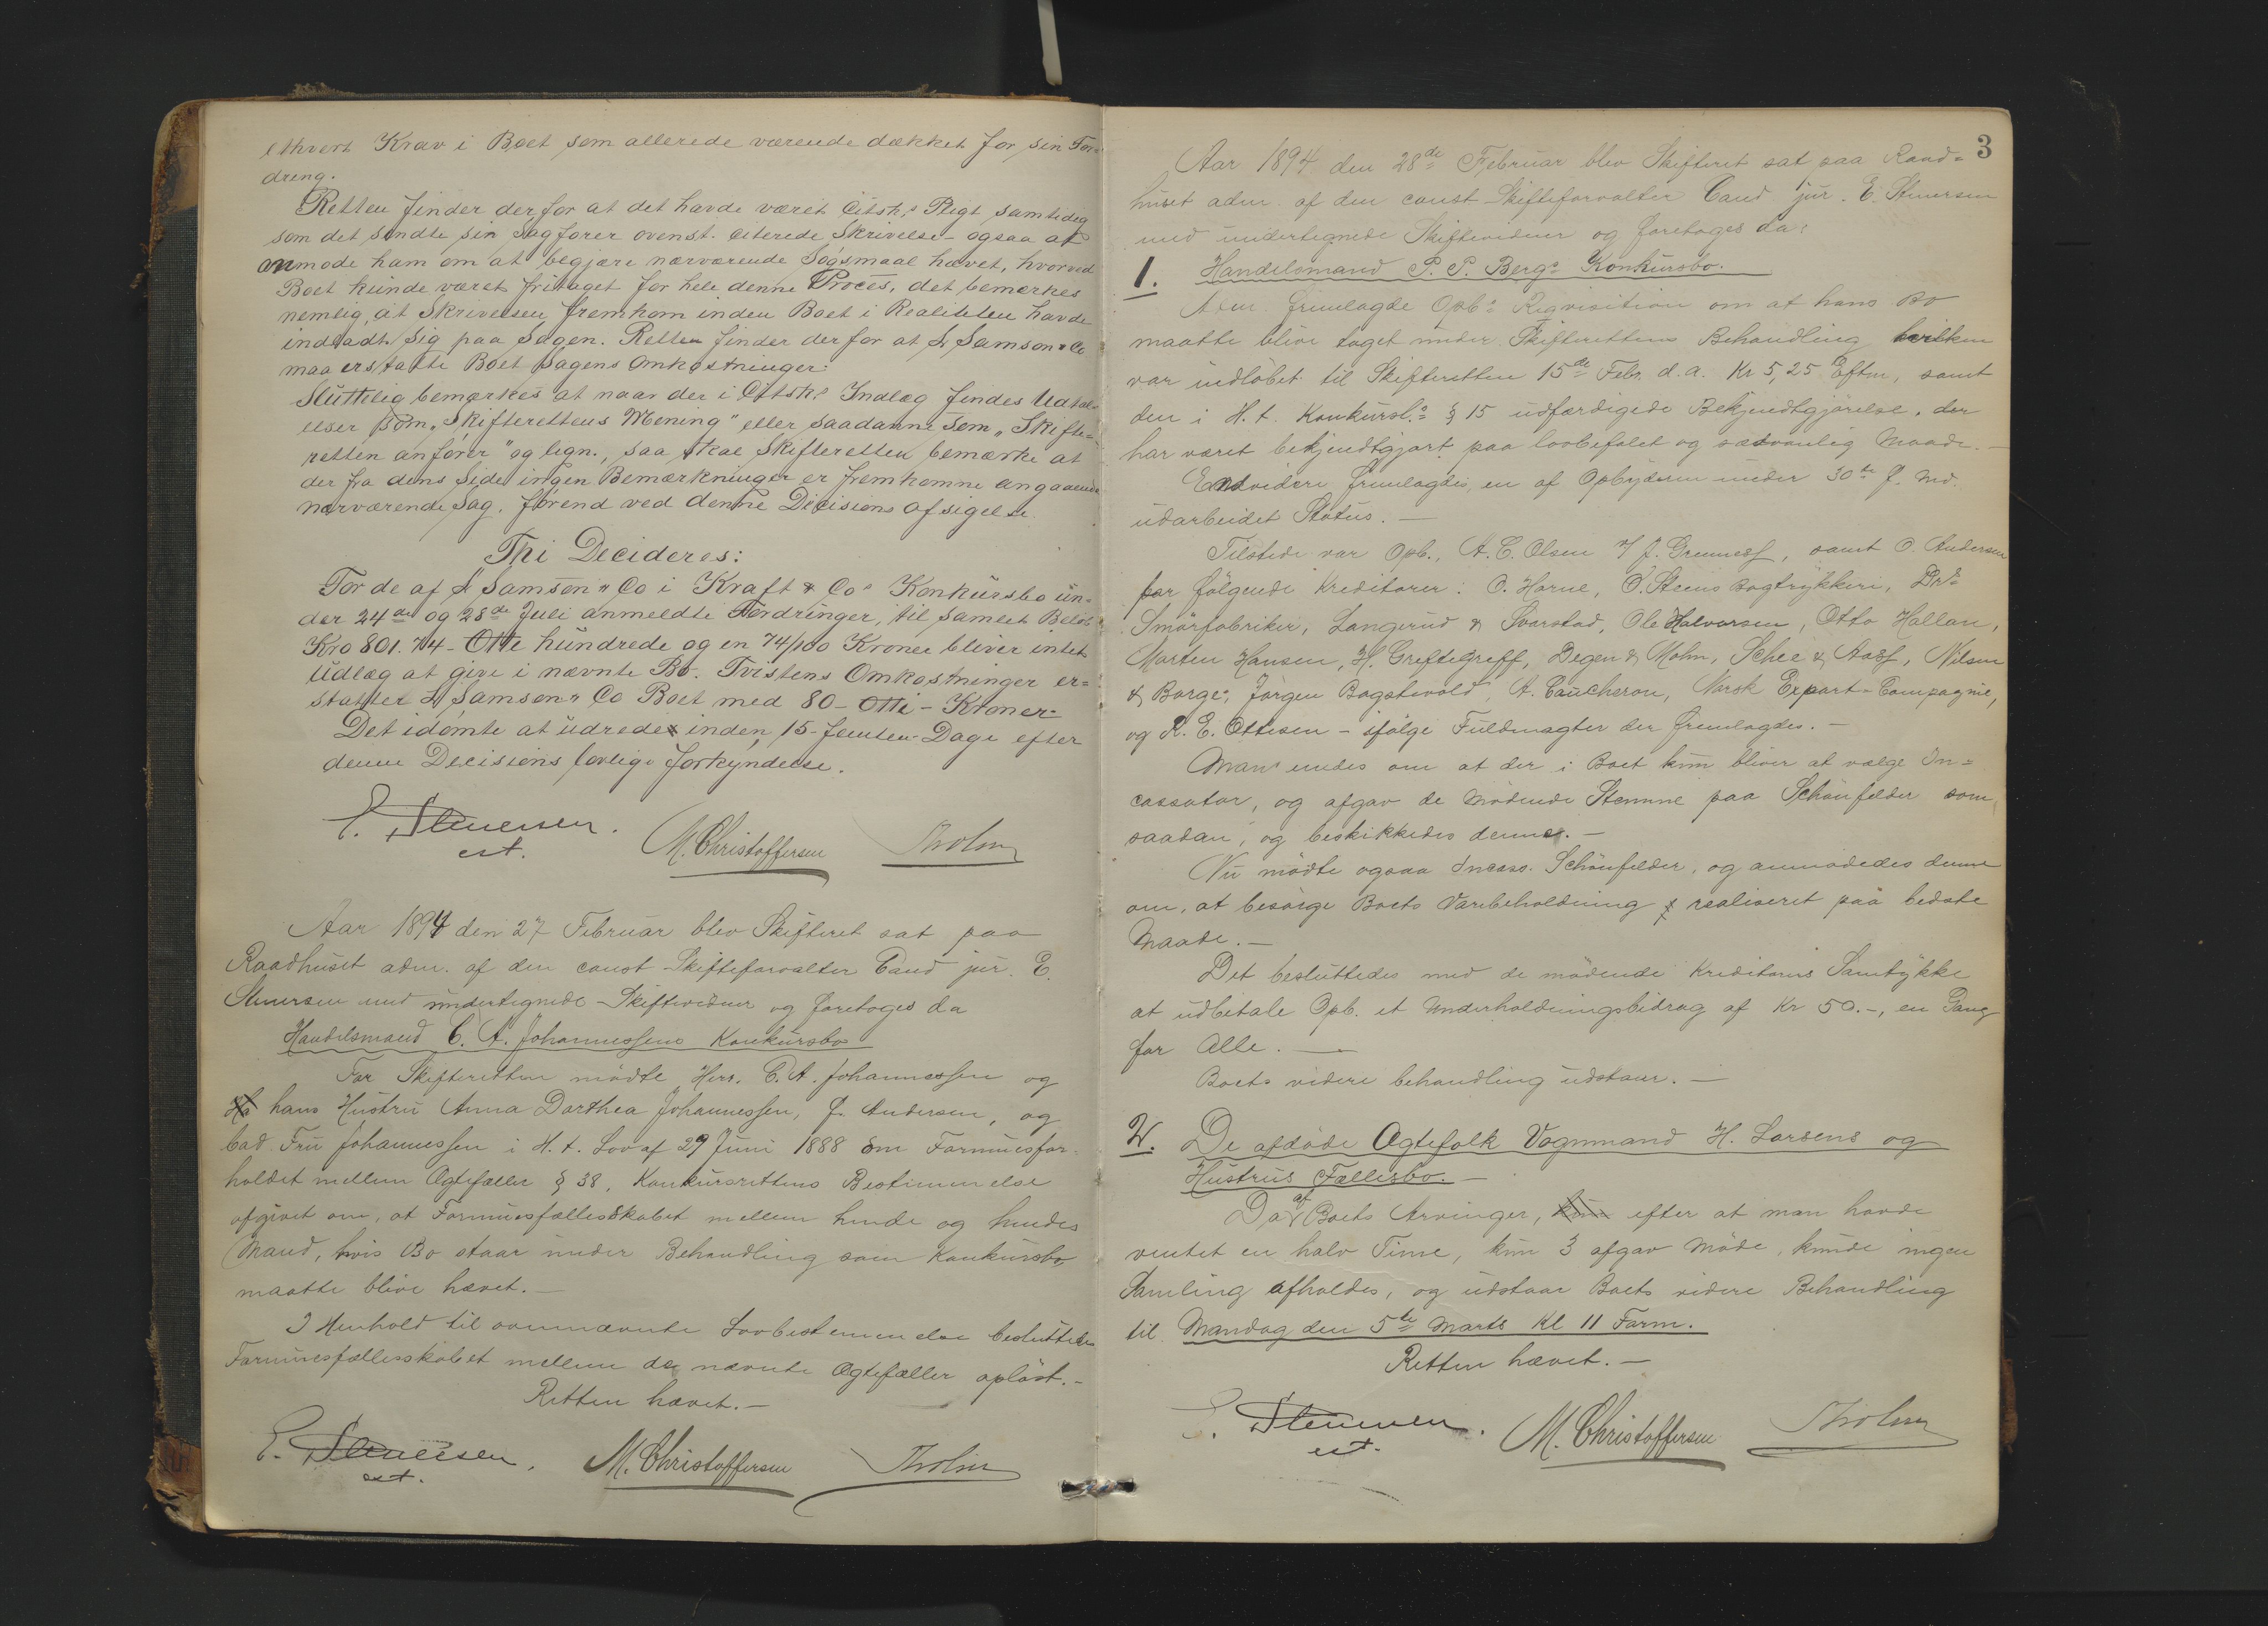 ethvert Krav i Boet som allerede værende dækket for sin For=
dreng.
Retten finder derfor at det havde været Citsk.s Pligt samtidig
som det sendte sin Sagfører ovenst. citerede Skrivelse - ogsaa at
anmode ham om at begjære nærværende Søgsmaal hævet, hvorved
Boet kunde været fritaget for hele denne Proces, det bemærkes
nemlig, at Skrivelsen fremkom inden Boet i Realiteten havde
indladt sig paa Sagen. Retten finder derfor at S. Samson & Co
maa erstatte Boet Sagens Omkostninger.
Sluttelig bemærkes at naar der i Citsk.s Indlæg findes Udtal-
elser som „Skifterettens Mening" eller saadanne som „Skifte=
retten anfører" og lign., saa skal Skifteretten bemærke at
der fra dens Side ingen Bemærkninger er fremkomne angaaende
nærværende Sag, førend ved denne Decisions afsigelse.
Thi Decideres:
For de af S. Samson & Co i Kraft & Co.s Konkursbo un=
der 24de og 28de Juli anmeldte Fordringer, til samlet Beløb
Kro 801.74 - Otte hundrede og en 74/100 Kroner bliver intet
Udlæg at give i nævnte Bo. Tvistens Omkostninger er=
statter S. Samson & Co Boet med 80 - Otti - Kroner.
Det idømte at udredes inden 15 - femten - Dage efter
denne Decisions lovlige forkyndelse.
E. Stenersen.
cst.
M. Christoffersen
Tholin
Aar 1894 den 27 Februar blev Skifteret sat paa
Raadhuset adm. af den const. Skifteforvalter Cand jur. E.
Stenersen med undertegnede Skiftevidner og foretoges da
Handelsmand C. A. Johannessens Konkursbo
For Skifteretten mødte Herr. C. A. Johannessen og
hans Hustru Anna Dorthea Johannessen, f. Andersen, og
bad Fru Johannessen i H. t. Lov af 29 Juni 1888 om Formuesfor-
holdet mellem Ægtefæller § 38, Konkursrettens Bestemmelse
afgivet om, at Formuesfællesskabet mellem hende og hendes
Mand, hvis Bo staar under Behandling som Konkursbo,
maatte blive hævet.—
I Henhold til ovennævnte Lovbestemmelse besluttedes
Formuesfællesskabet mellem de nævnte Ægtefæller opløst.—
Retten hævet.—
E. Stenersen.
cst.
M. Christoffersen
Tholin
3
Aar 1894 den 28de Februar blev Skifteret sat paa Raad=
huset adm. af den const. Skifteforvalter Cand jur. E. Stenersen
med undertegnede Skiftevidner og foretoges da:
1. Handelsmand P. P. Bergs Konkursbo.
Adm. fremlagde Opb.s Reqvisition om at hans Bo
maatte blive taget under Skifterettens Behandling hvilken
var indløbet til Skifteretten 15de Febr. d. a. Kl 5,25 Eftm., samt
den i H. t. Konkursl.s § 15 udfærdigede Bekjendtgjørelse, der
har været bekjendtgjort paa lovbefalet og sædvanlig Maade.—
Endvidere fremlagdes en af Opbyderen under 30te f. Md.
udarbeidet Status.—
Tilstede var Opb., A. C. Olsen v/ J. Grennes, samt O. Andersen
for følgende Kreditorer: O. Horne, O. Steens Bogtrykkeri, Dr=
Smørfabriker, Langerud & Svarstad, Ole Halvorsen, Otto Hallan,
Marten Hansen, H. Greftegreff, Degen & Mohn, Schee & Aass, Nilsen
& Borge, Jørgen Bogstevold, A. Caucheron, Norsk Export-Compagnie,
og R. E. Ottesen - ifølge Fuldmagter der fremlagdes.—
Man enedes om at der i Boet kun bliver at vælge In=
cassator, og afgav de mødende Stemme paa Schønfelder som
saadan, og beskikkedes denne.—
Nu mødte ogsaa Incass. Schønfelder, og anmodedes denne
om, at besørge Boets Varebeholdning realiseret paa bedste
Maade.—
Det besluttedes med de mødende Kreditorers Samtykke
at udbetale Opb. et Underholdningsbidrag af Kr 50.-, en Gang
for Alle.—
Boets videre behandling udstaar.—
2. De afdøde Ægtefolk Vognmand H. Larsens og
Hustrus Fællesbo.—
Da af Boets Arvinger, efter at man havde
ventet en halv Time, kun 3 afgav Møde, kunde ingen
Samling afholdes, og udstaar Boets videre Behandling
til Mandag den 5te Marts Kl 11 Form.
Retten hævet.—
E. Stenersen.
cst.
M. Christoffersen
Tholin